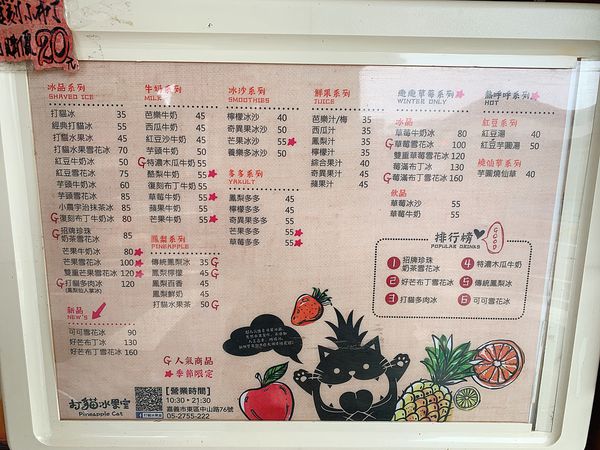 復刻小布丁
特價20元
冰品系列
SHAVED ICE
打貓冰 35
經典打貓冰 55
打貓水果冰 45
打貓水果雪花冰 70
紅豆牛奶冰 50
紅豆雪花冰 75
芋頭牛奶冰 60
芋頭雪花冰 85
小農宇治抹茶冰 85
G復刻布丁牛奶冰 75
G招牌珍珠奶茶雪花冰 85
芒果牛奶冰 80★
芒果雪花冰 100★
雙重芒果雪花冰 120★
G打貓多肉冰 120
(鳳梨仙人掌冰)
新品
NEW'S
可可雪花冰 90
好芒布丁冰 130
好芒布丁雪花冰 160
牛奶系列
MILK
芭樂牛奶 45
西瓜牛奶 45
紅豆沙牛奶 45
芋頭牛奶 55
G特濃木瓜牛奶 55
酪梨牛奶 55★
復刻布丁牛奶 55
草莓牛奶 55★
蘋果牛奶 55
芒果牛奶 55★
鳳梨系列
PINEAPPLE
傳統鳳梨冰 35 G
鳳梨檸檬 45 G
鳳梨百香 45
鳳梨鮮奶 45
打貓水果茶 50 G
冰沙系列
SMOOTHIES
檸檬冰沙 40
奇異果冰沙 50
芒果冰沙 55★
養樂多冰沙 50
多多系列
YAKULT
鳳梨多多 45
檸檬多多 45
奇異果多多 50
芒果多多 55★
草莓多多 55★
鮮果系列
JUICE
芭樂汁/梅 35
西瓜汁 35
鳳梨汁 35
檸檬汁 35
綜合果汁 40
奇異果汁 45
蘋果汁 45
戀戀草莓系列★
WINTER ONLY
冰品
草莓牛奶冰 80
G草莓雪花冰 100
雙重草莓雪花冰 120
莓滿布丁冰 130
G莓滿布丁雪花冰 160
飲品
草莓冰沙 55
草莓牛奶 55
熱呼呼系列★
HOT
紅豆系列
紅豆湯 40
紅豆芋圓湯 50
燒仙草系列
芋圓燒仙草 40
排行榜
POPULAR DRINKS
GOOD
1 招牌珍珠奶茶雪花冰
2 好芒布丁雪花冰
3 打貓多肉冰
4 特濃木瓜牛奶
5 傳統鳳梨冰
6 可可雪花冰
G人氣商品
★季節限定
打貓冰果室
Pineapple Cat
【營業時間】
10:30•21:30
嘉義市東區中山路76號
05-2755-222
打貓冰果室